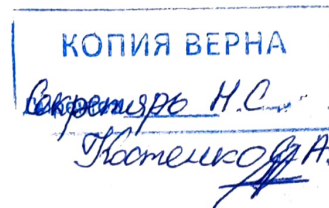 КОПИЯ ВЕРНА
Секретарь Н.С.
Костенко А.